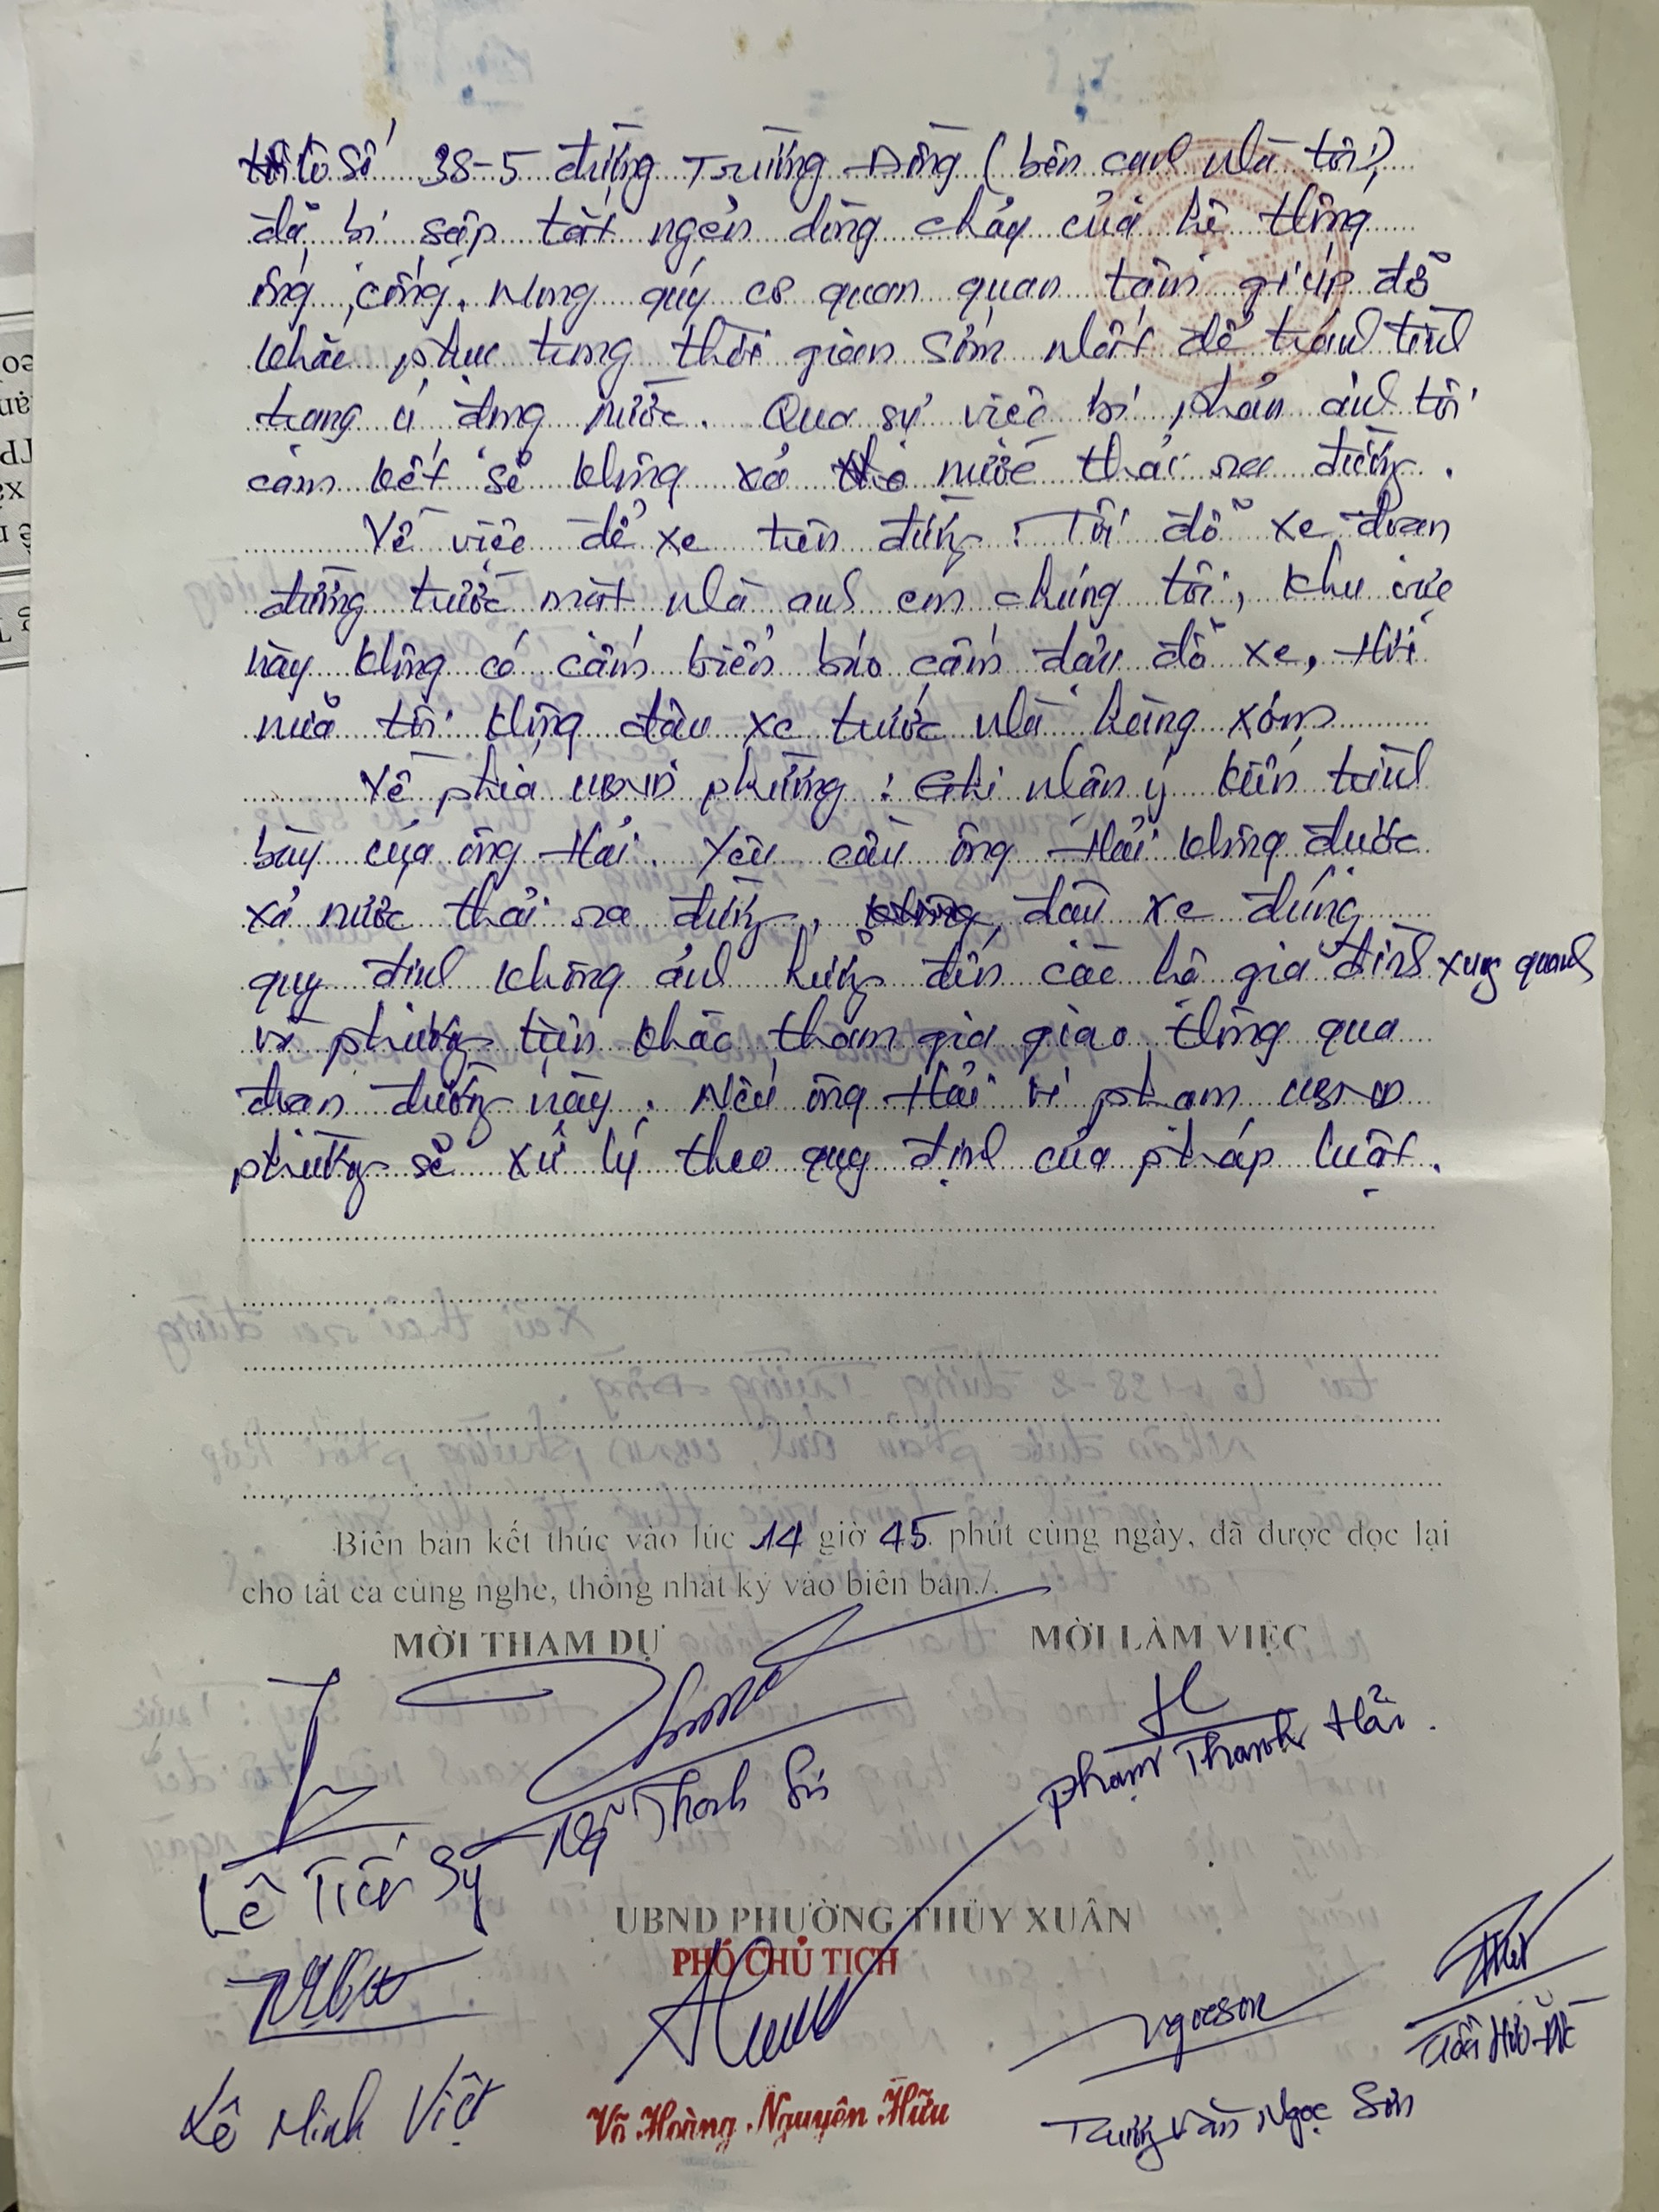 lô số 38-5 đường Trường Đông (bên cạnh nhà tôi)
đã bị sập tắt ngẽn dòng chảy của hệ thống
ống cống. Mong quý cơ quan quan tâm giúp đỡ
khắc phục trong thời gian sớm nhất để tránh tình
trạng ứ đọng nước. Qua sự việc bị phản ánh tôi
cam kết sẽ không xả nước thải ra đường.
Về việc để xe trên đường: Tôi đỗ xe đoạn
đường trước mặt nhà anh em chúng tôi, khu vực
này không có cắm biển báo cấm đậu đỗ xe, Hơn
nữa tôi không đậu xe trước nhà hàng xóm
Về phía UBND phường: Ghi nhận ý kiến trình
bày của ông Hải. Yêu cầu ông Hải không được
xả nước thải ra đường, đậu xe đúng
quy định không ảnh hưởng đến các hộ gia đình xung quanh
và phương tiện khác tham gia giao thông qua
đoạn đường này. Nếu ông Hải vi phạm UBND
phường sẽ xử lý theo quy định của pháp luật.
Biên bản kết thúc vào lúc 14 giờ 45 phút cùng ngày, đã được đọc lại
cho tất cả cùng nghe, thống nhất ký vào biên bản./.
MỜI THAM DỰ
MỜI LÀM VIỆC
Phạm Thanh Hải.
Lê Tiến Sỹ
Thanh
UBND PHƯỜNG THỦY XUÂN
PHÓ CHỦ TỊCH
Ngocson
Lê Minh Việt
Võ Hoàng Nguyên Hữu
Trương Văn Ngọc Sơn
Trần Hữu